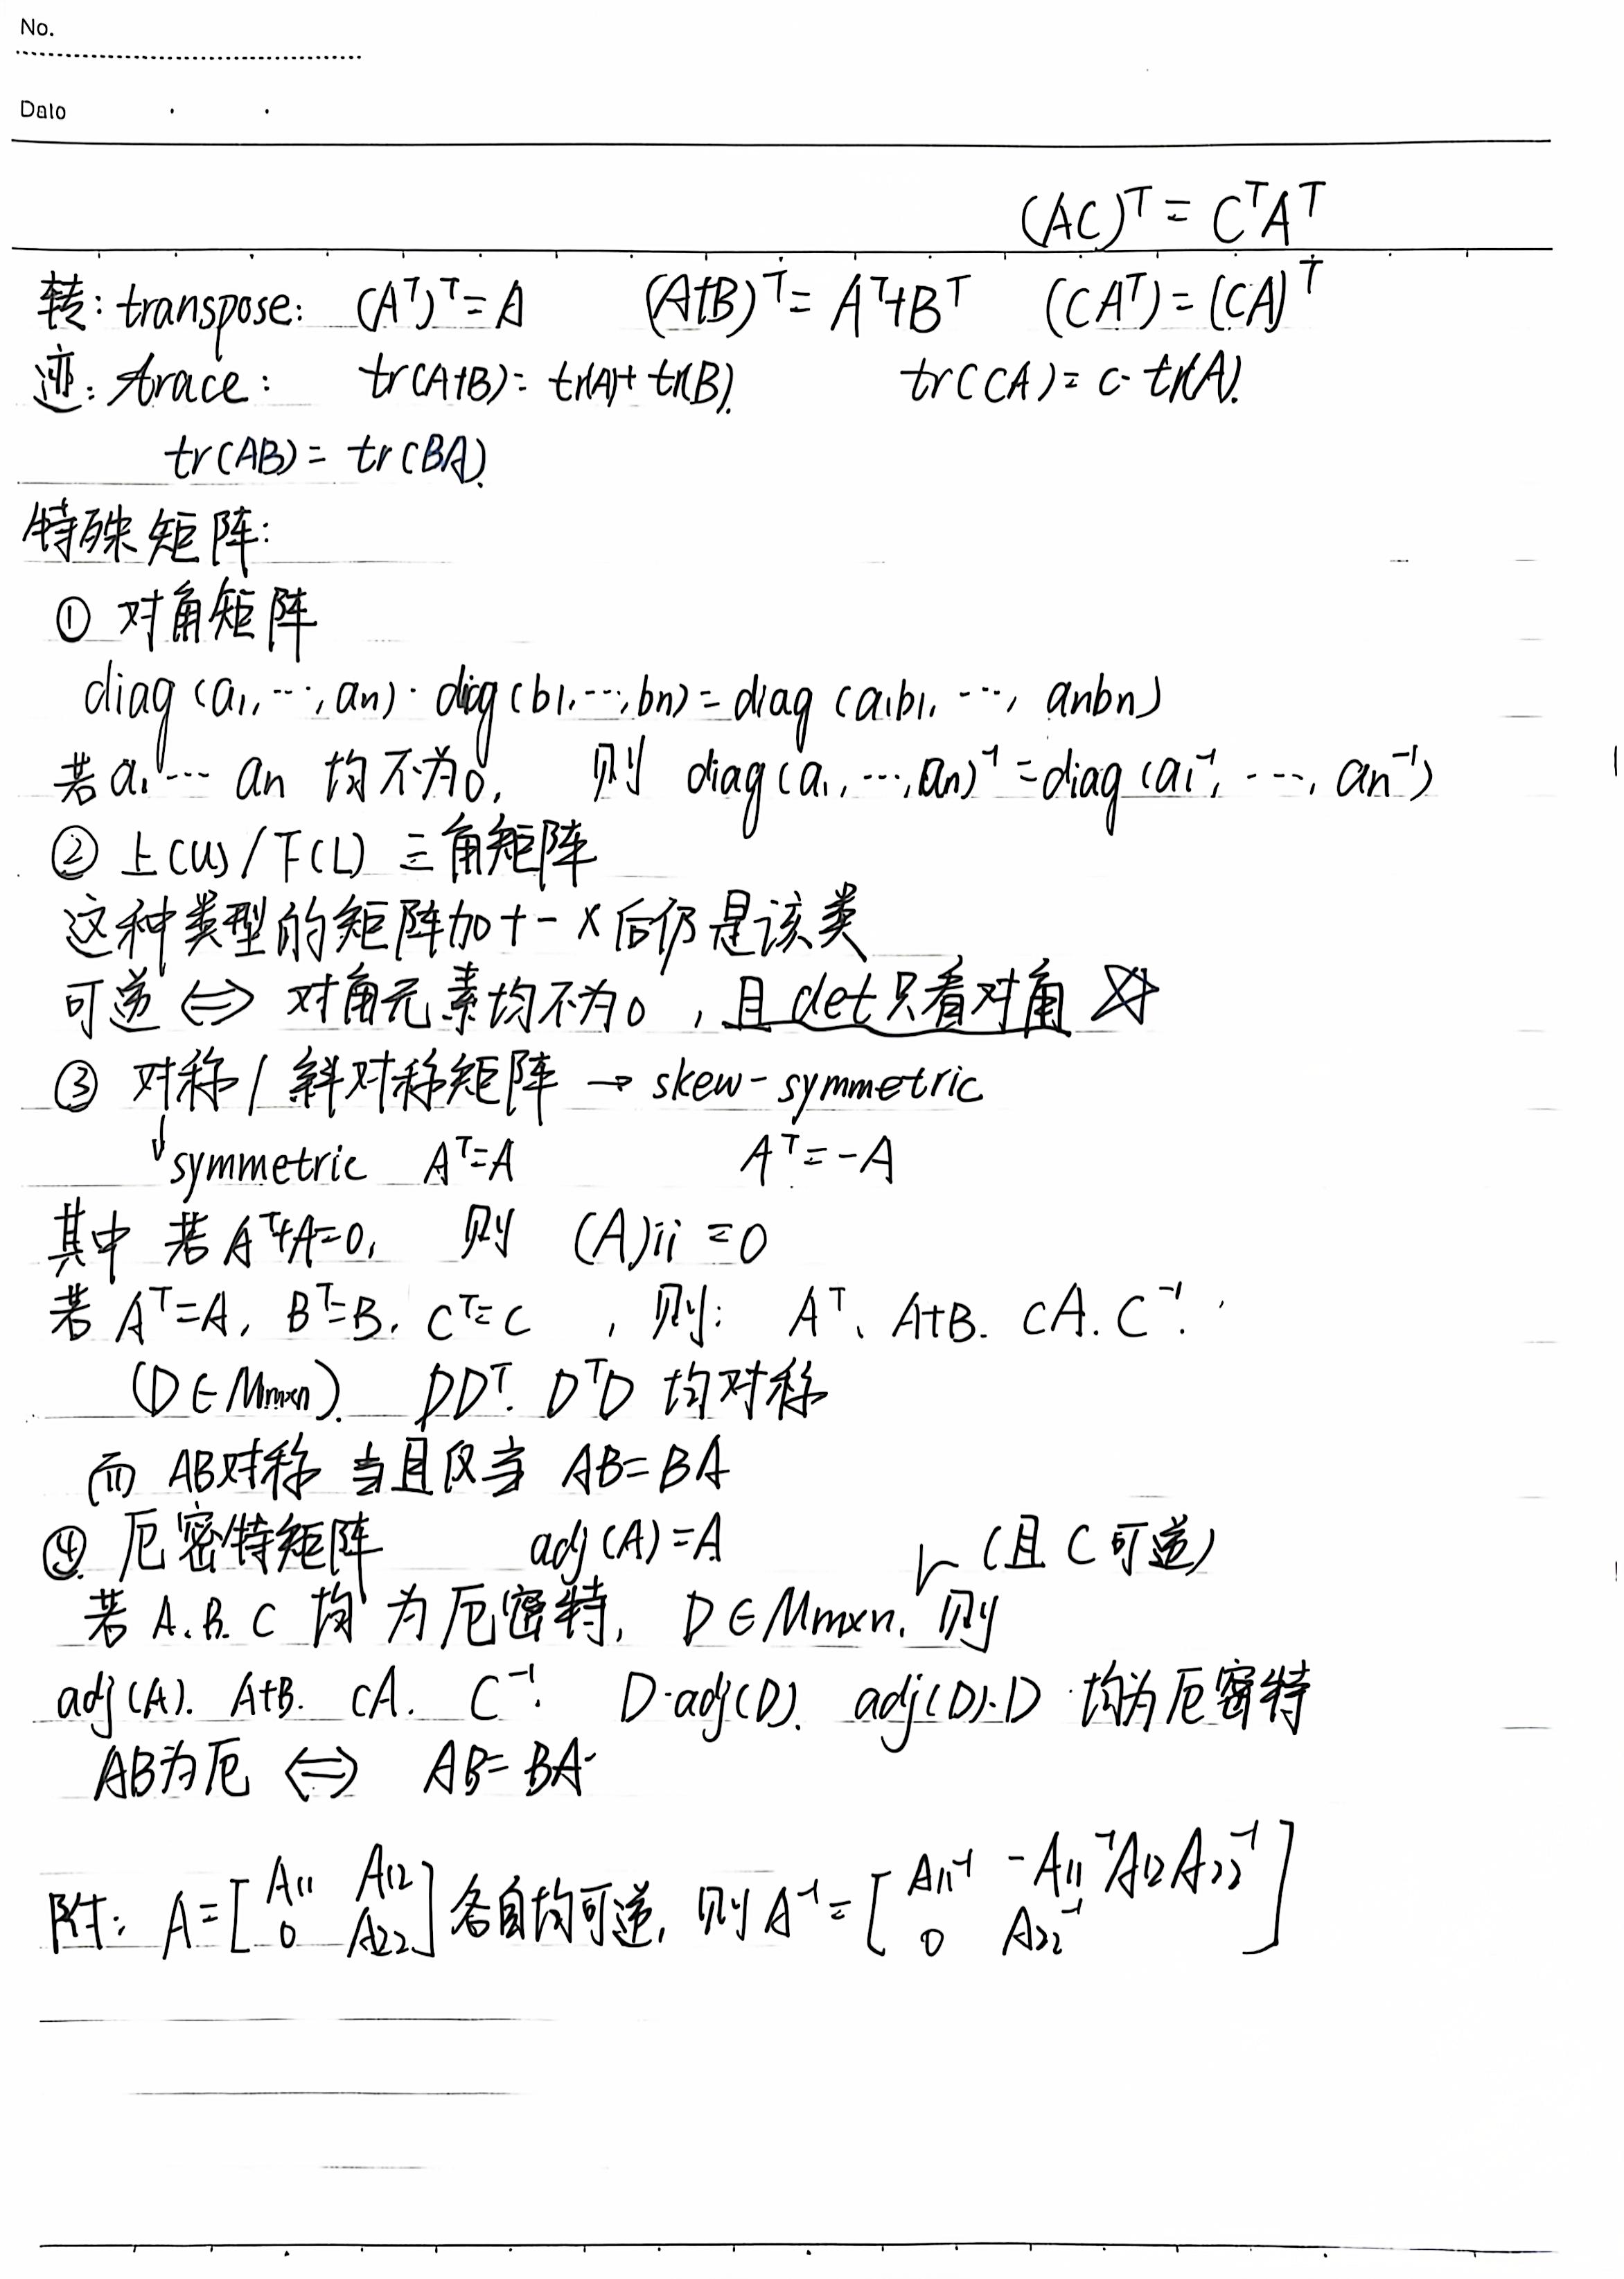 No.
Date
(AC)ᵀ = CᵀAᵀ
转: transpose: (Aᵀ)ᵀ = A (A+B)ᵀ = Aᵀ+Bᵀ (CAᵀ) = (CA)ᵀ
迹: trace: tr(A+B) = tr(A)+ tr(B). tr(CA) = c· tr(A).
tr(AB) = tr(BA).
特殊矩阵:
① 对角矩阵
diag (a₁, ⋯, an) · diag (b₁, ⋯, bn) = diag (a₁b₁, ⋯, anbn)
若 a₁ ⋯ an 均不为0, 则 diag (a₁, ⋯, an)⁻¹ = diag (a₁⁻¹, ⋯, an⁻¹)
② 上(U)/下(L) 三角矩阵
这种类型的矩阵加 + - × 后仍是该类
可逆 ⇔ 对角元素均不为0 , 且 det 只看对角
③ 对称 / 斜对称矩阵 → skew-symmetric
↓ symmetric Aᵀ=A Aᵀ=-A
其中 若 Aᵀ+A=0, 则 (A)ii = 0
若 Aᵀ=A, Bᵀ=B, Cᵀ=C , 则: Aᵀ、A+B. cA. C⁻¹.
(D∈Mm×n). DDᵀ. DᵀD 均对称
而 AB对称 当且仅当 AB=BA
④ 厄密特矩阵 adj (A) = A (且 C 可逆)
若 A. B. C 均为厄密特, D∈Mm×n. 则
adj (A). A+B. cA. C⁻¹. D·adj(D). adj(D)·D 均为厄密特
AB为厄 ⇔ AB=BA
附: A = [A₁₁ A₁₂ 0 A₂₂] 各自均可逆, 则 A⁻¹ = [A₁₁⁻¹ -A₁₁⁻¹A₁₂A₂₂⁻¹ 0 A₂₂⁻¹]